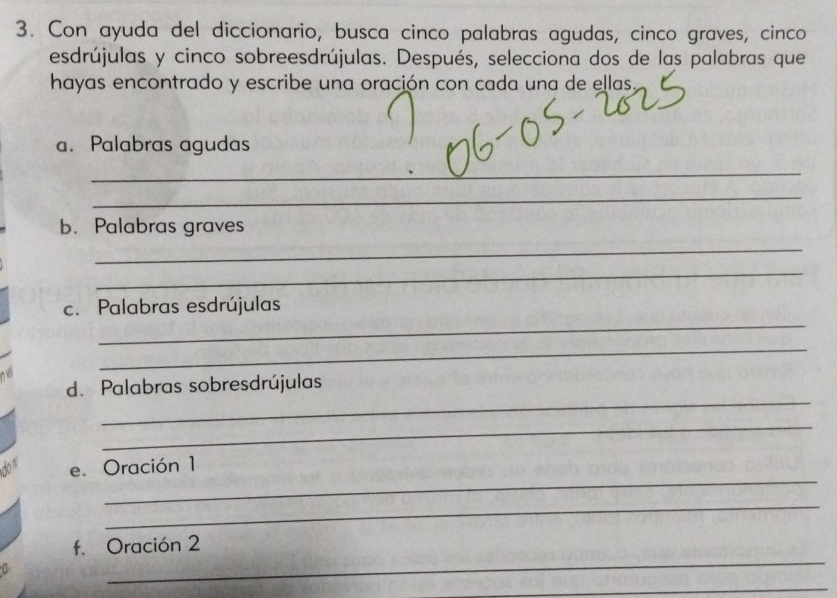 3. Con ayuda del diccionario, busca cinco palabras agudas, cinco graves, cinco
esdrújulas y cinco sobreesdrújulas. Después, selecciona dos de las palabras que
hayas encontrado y escribe una oración con cada una de ellas.
? 06-05 2025
a. Palabras agudas
b. Palabras graves
c. Palabras esdrújulas
d. Palabras sobresdrújulas
e. Oración 1
f. Oración 2